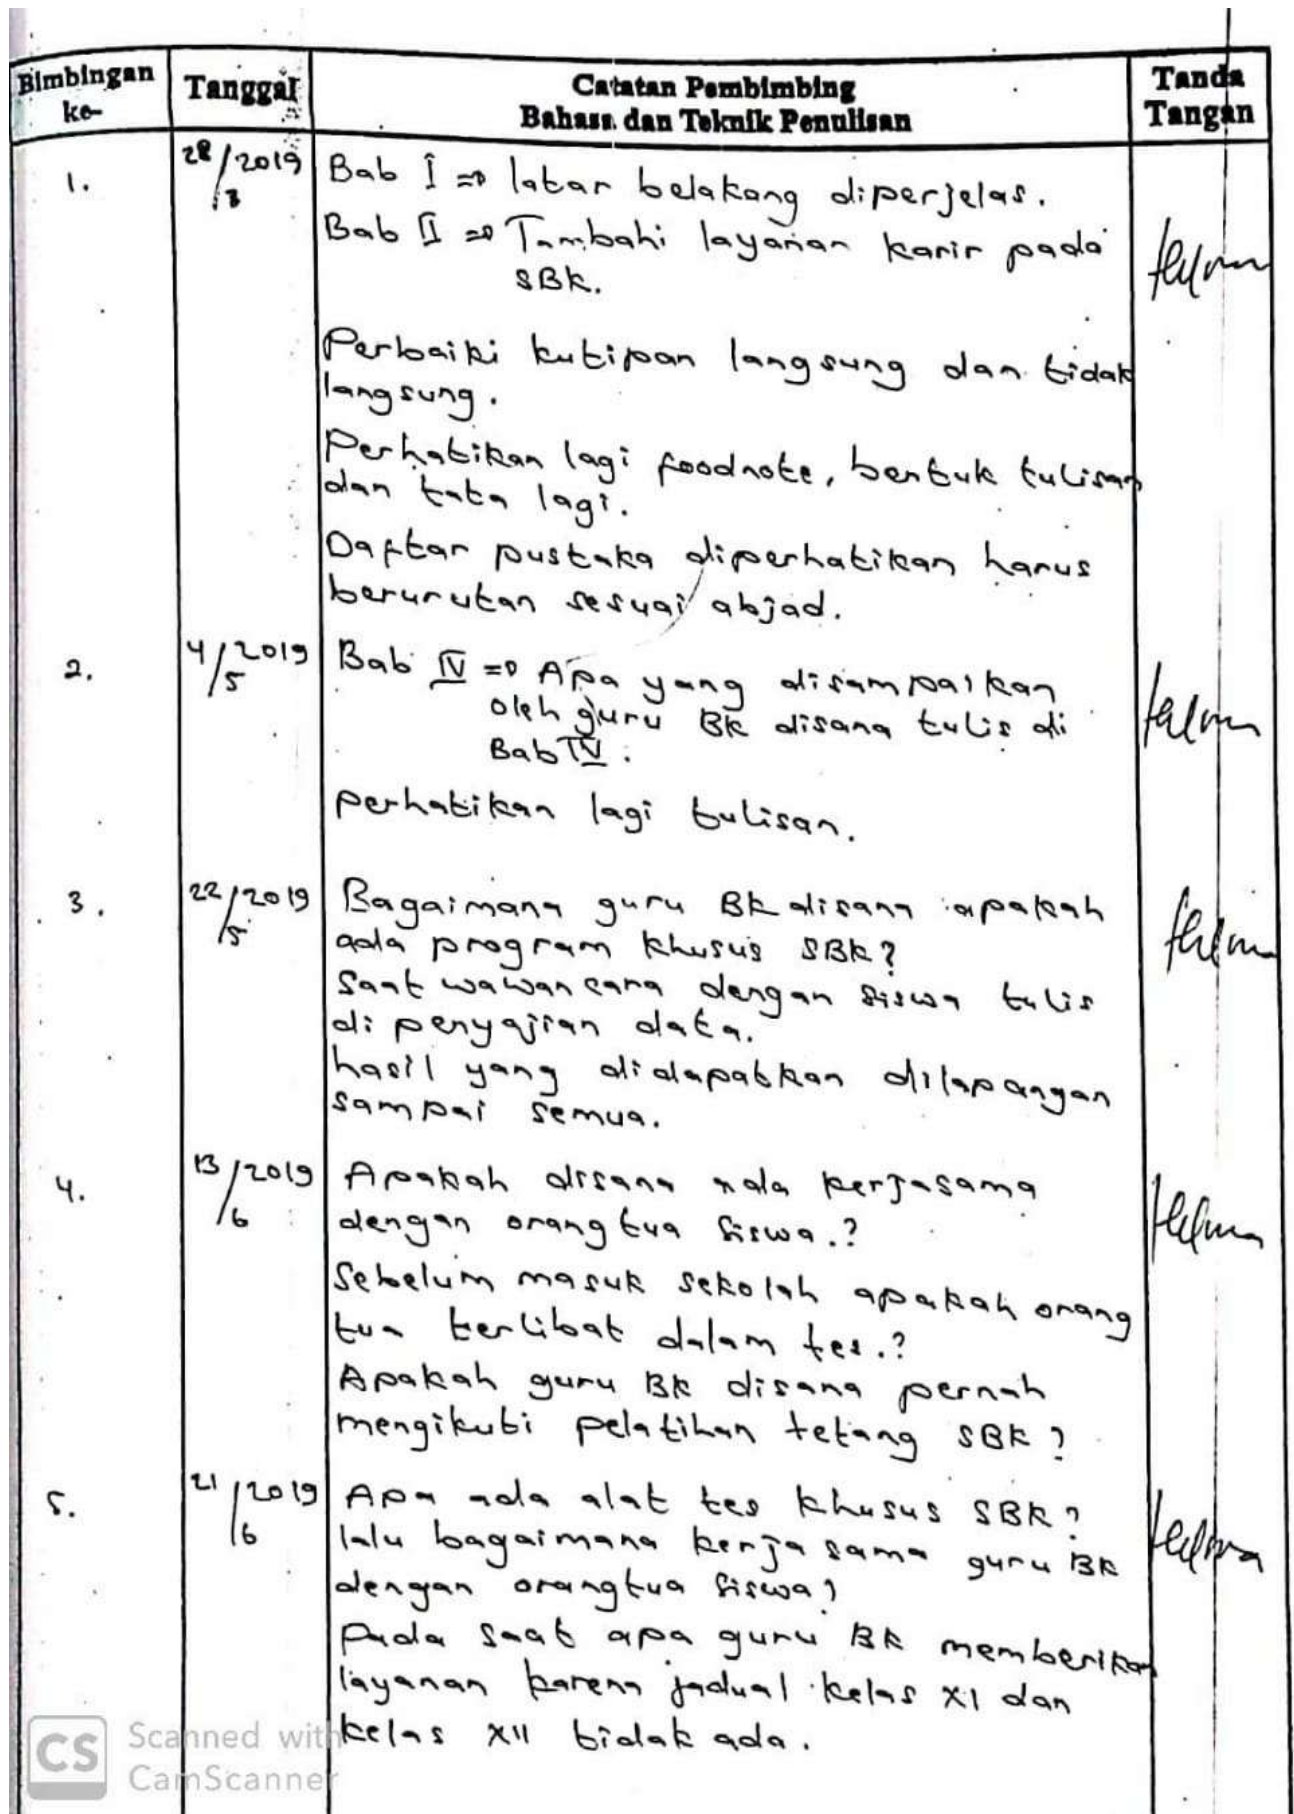 Bimbingan ke-
Tanggal
Catatan Pembimbing
Bahasa dan Teknik Penulisan
Tanda Tangan
1.
28/3 2019
Bab I => latar belakang diperjelas.
Bab II => Tambahi layanan karir pada
SBK.
Perbaiki kutipan langsung dan tidak
langsung.
Perhatikan lagi foodnote, bentuk tulisan
dan tata lagi.
Daftar pustaka diperhatikan harus
berurutan sesuai abjad.
2.
4/5 2019
Bab IV => Apa yang disampaikan
oleh guru BK disana tulis di
Bab IV.
perhatikan lagi tulisan.
3.
22/5 2019
Bagaimana guru BK disana apakah
ada program khusus SBK?
Saat wawancara dengan siswa tulis
di penyajian data.
hasil yang didapatkan dilapangan
sampai semua.
4.
13/6 2019
Apakah disana ada kerjasama
dengan orangtua siswa.?
Sebelum masuk sekolah apakah orang
tua terlibat dalam tes.?
Apakah guru BK disana pernah
mengikuti pelatihan tetang SBK?
5.
21/6 2019
Apa ada alat tes khusus SBK?
lalu bagaimana kerja sama guru BK
dengan orangtua siswa?
Pada saat apa guru BK memberikan
layanan karena jadual kelas XI dan
kelas XII tidak ada.
CS Scanned with
CamScanner